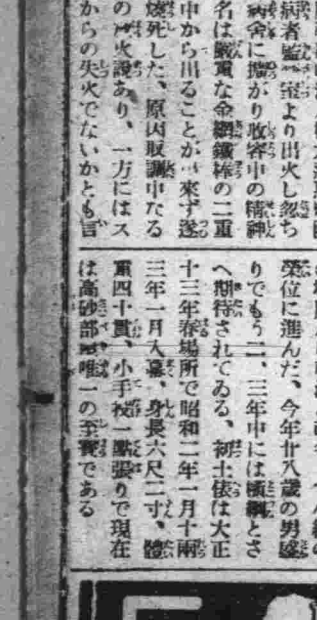 病者監 室より出火し忽ち
病舍に擴がり收容中の精神
名は嚴重な金網鐵棒の二重
中から出ることが 來ず遂
燒死した、原因取調中なる
の 火説あり、一方にはス
からの失火でないかとも言
榮位に進んだ、今年廿八歳の男盛
りでもう二、三年中には横綱とさ
へ期待されてゐる、初土俵は大正
十三年春場所で昭和二年一月十兩
三年一月入幕、身長六尺二寸、體
重四十貫、小手投一點張りで現在
は高砂部屋唯一の至寶である